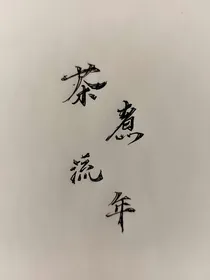 茶煮流年